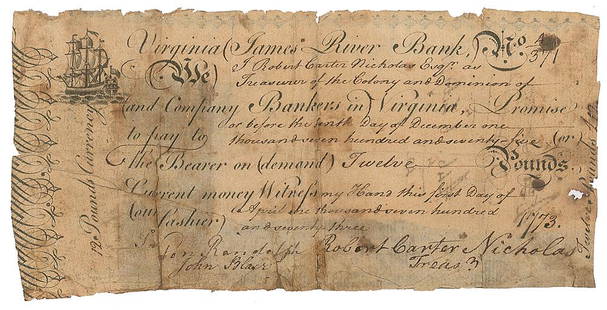 Virginia (James River Bank,) No.
(We) I Robert Carter Nicholas Esqr. as
Treasurer of the Colony and Dominion of
and Company Bankers in) Virginia Promise
or before the tenth Day of December one
to pay to thousand seven hundred and seventy five (or)
the Bearer on (demand) Twelve Pounds
Current money Witness my Hand this first Day of
(our Cashier) April one thousand seven hundred
and seventy three 1773.
Randolph Robert Carter Nicholas
John Blair Treasr
Pounds Currency